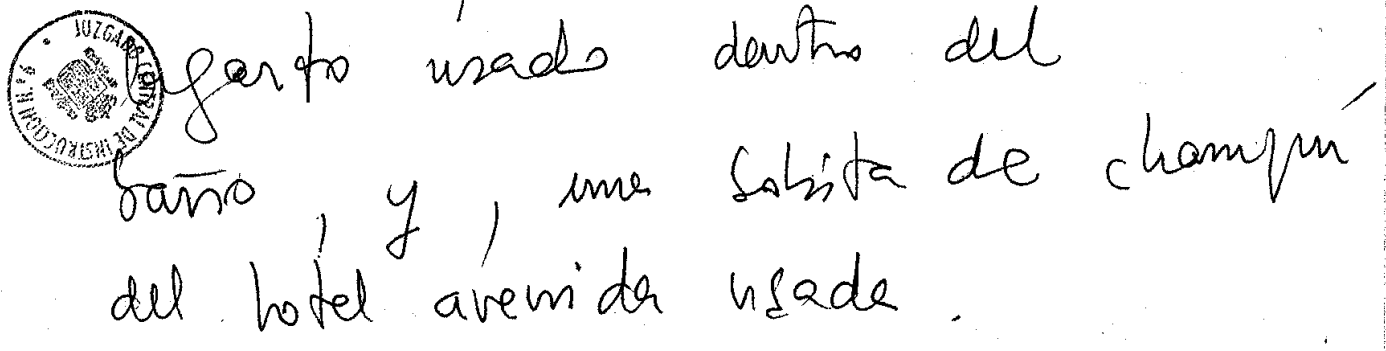 JUZGADO CENTRAL DE INSTRUCCION
lagarto usado dentro del
baño, y, una bolsita de champú
del hotel avenida usada.